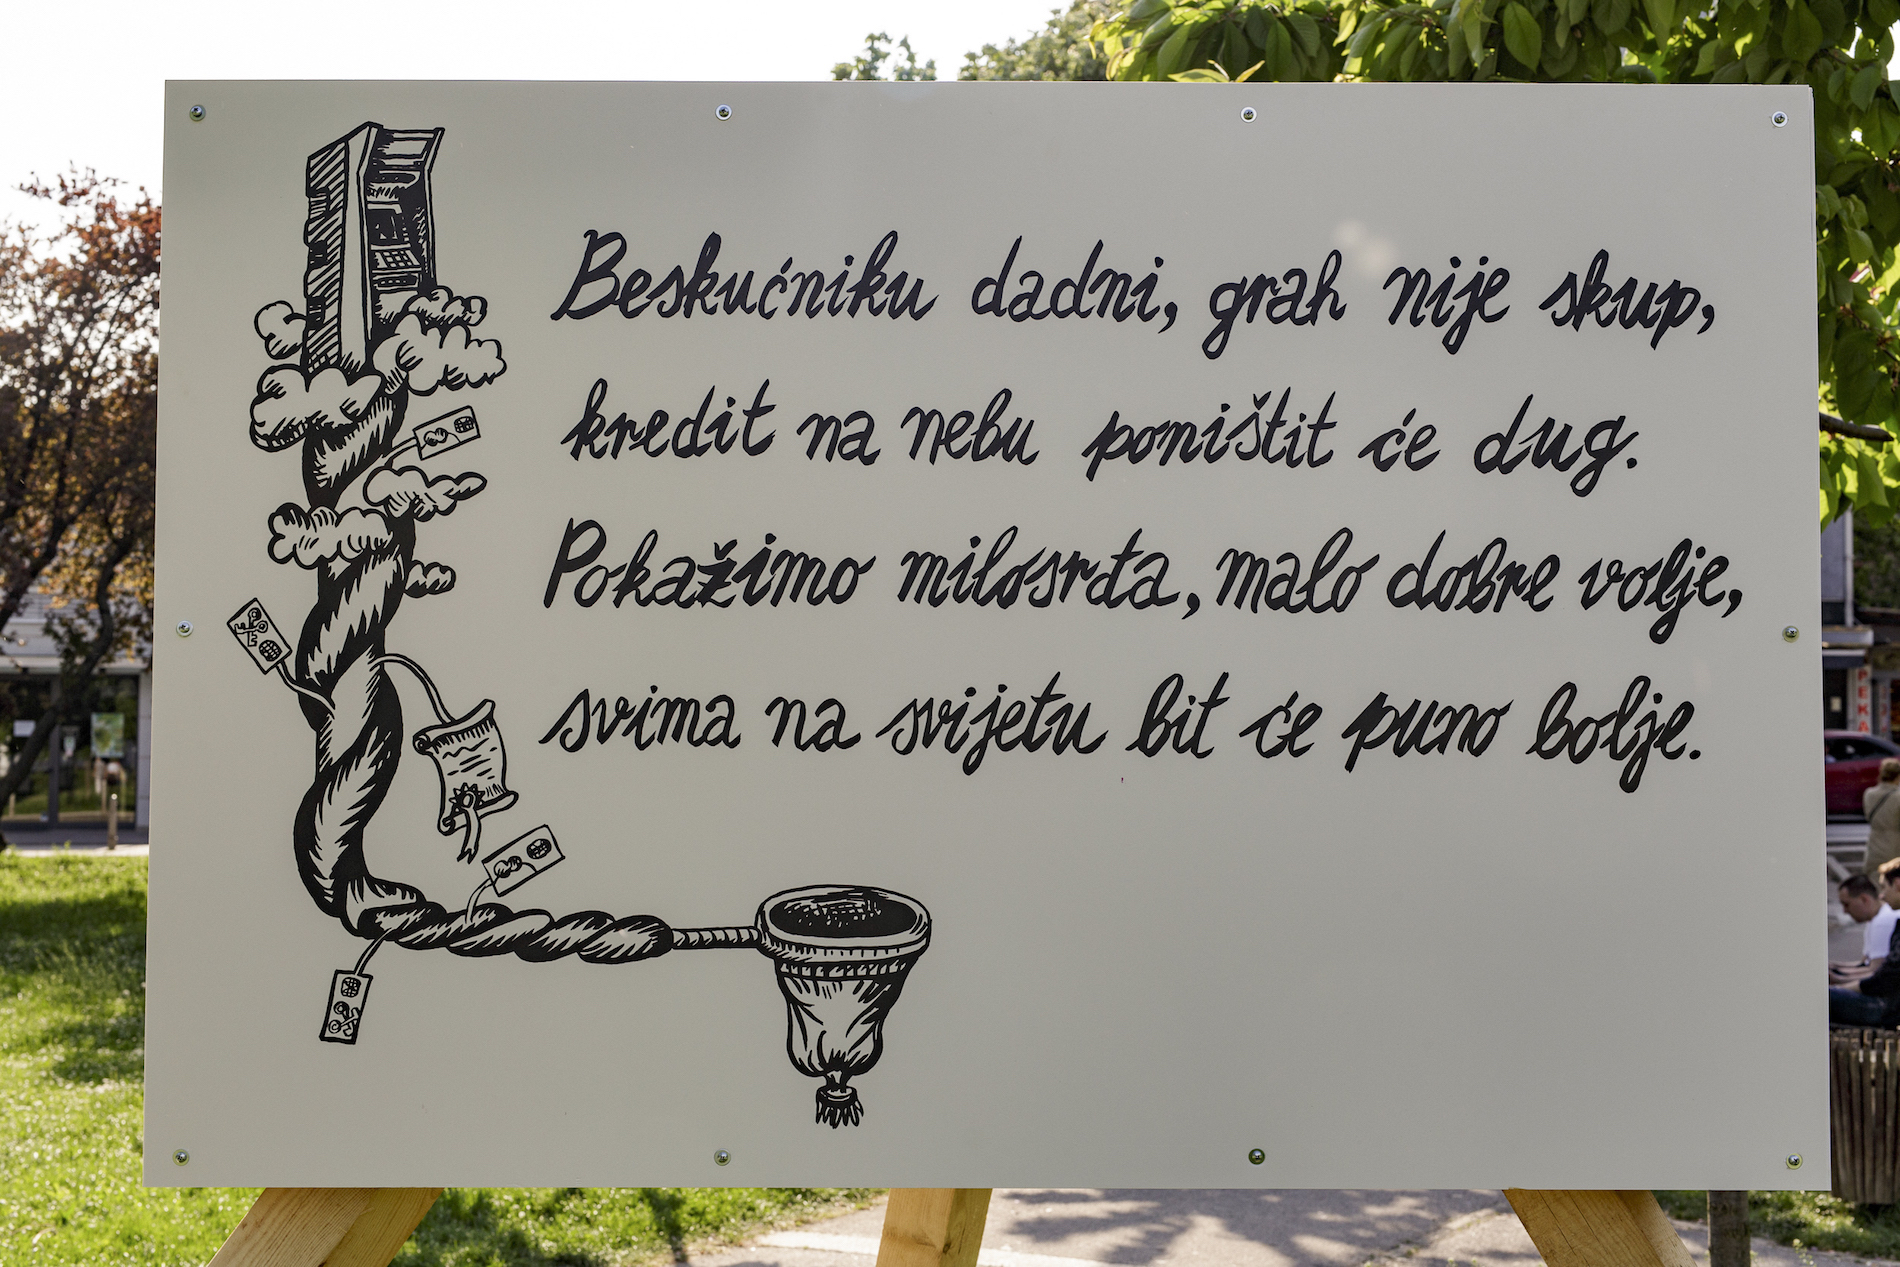 Beskućniku dadni, grah nije skup,
kredit na nebu poništit će dug.
Pokažimo milosrđa, malo dobre volje,
svima na svijetu bit će puno bolje.
PEKA